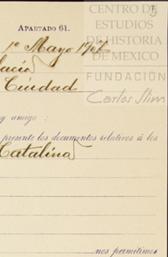 CENTRO DE
ESTUDIOS
DE HISTORIA
DE MEXICO
FUNDACIÓN
Carlos Slim
APARTADO 61.
1º Mayo 190
Ciudad
y amigo:
presente los documentos relativos á los
Catalina
nos permitimos